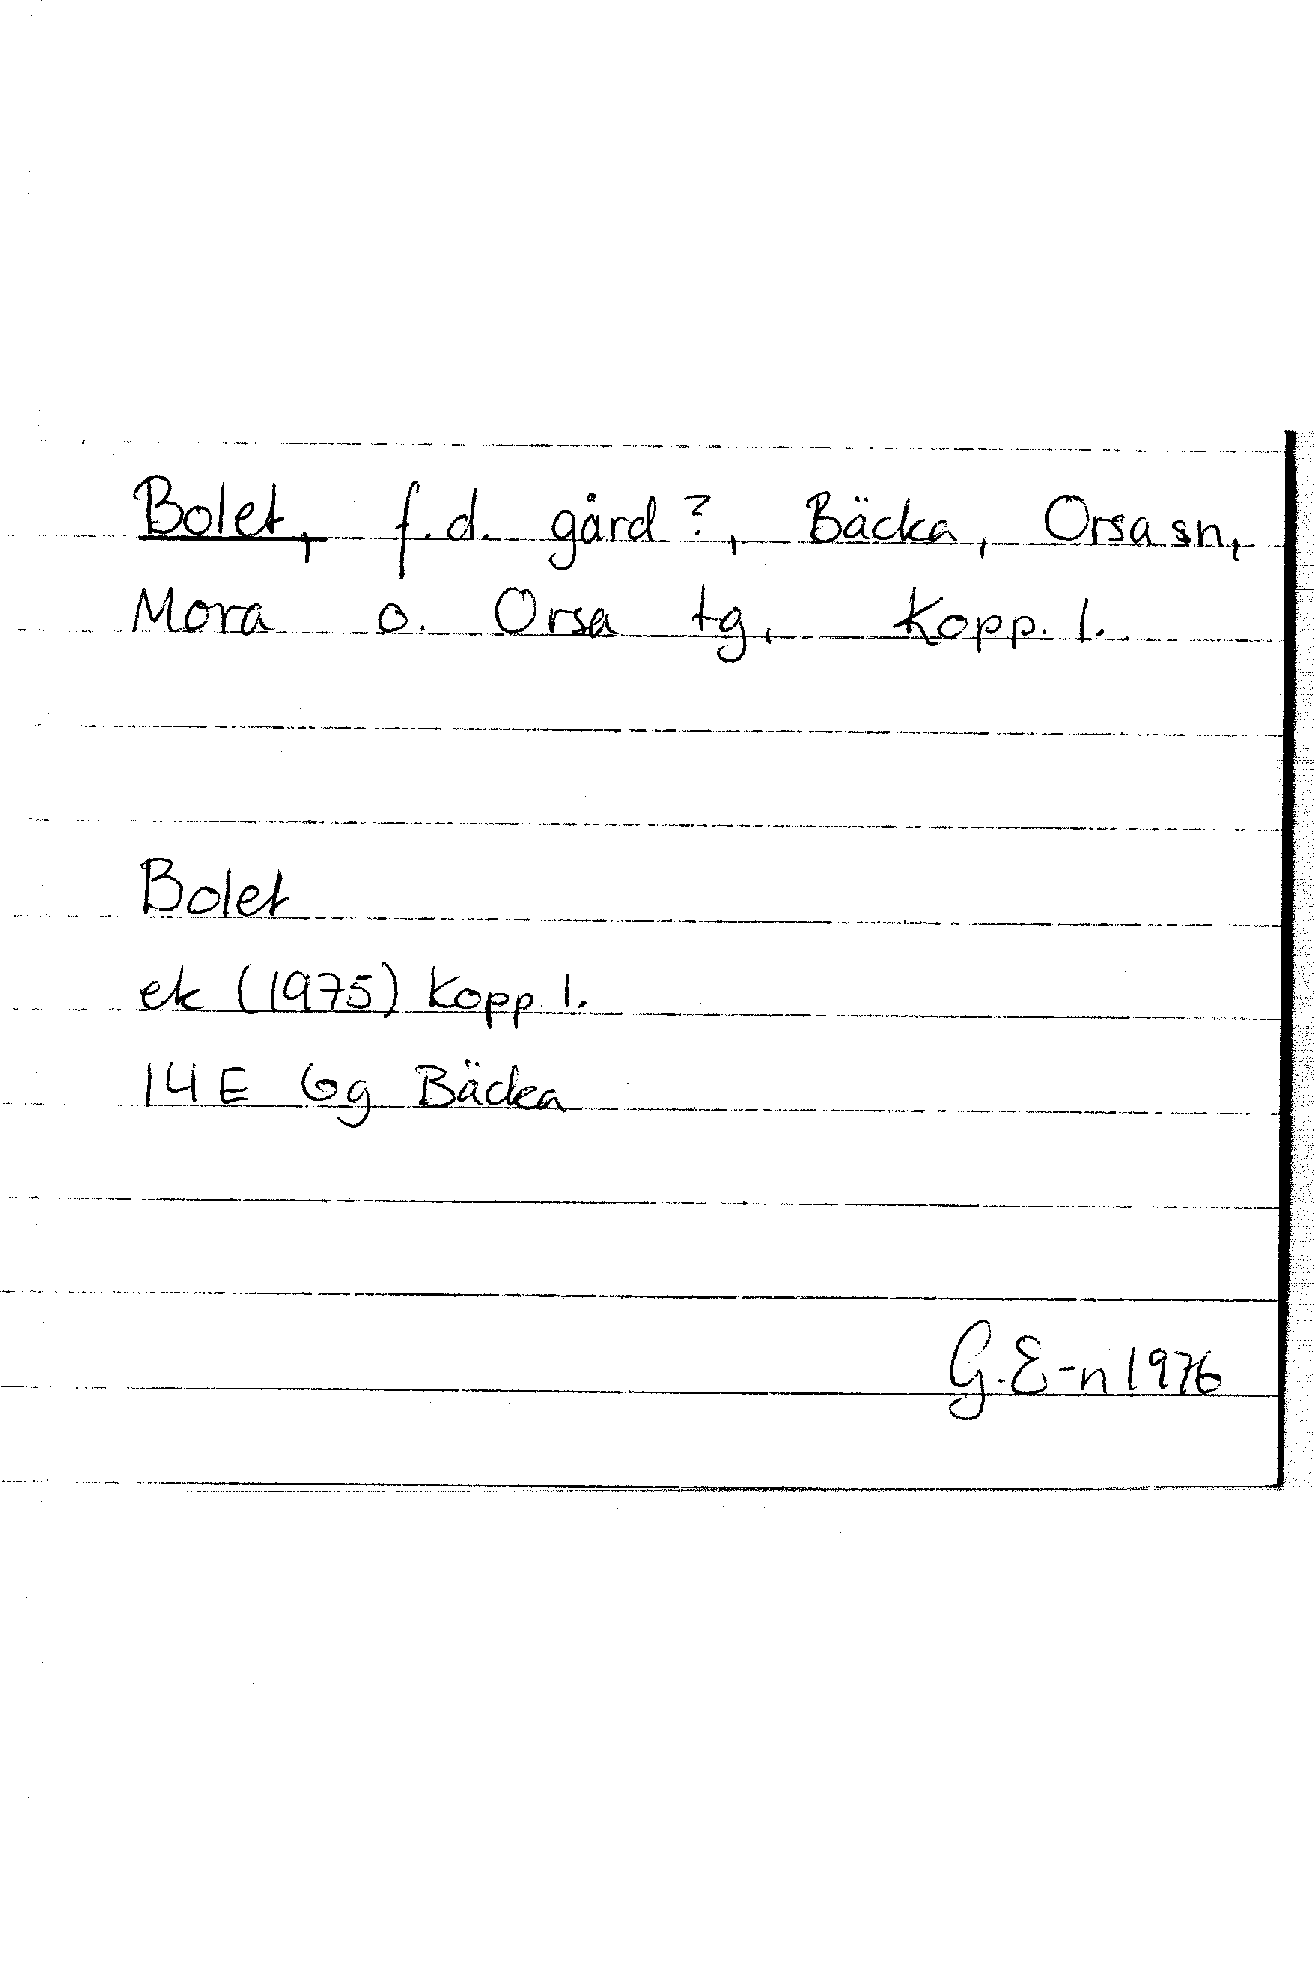 Bolet, f.d. gård?, Bäcka, Orsa sn,
Mora o. Orsa tg, Kopp. l.
Bolet
ek (1975) Kopp l.
14E 6g Bäcka
G.E-n 1976